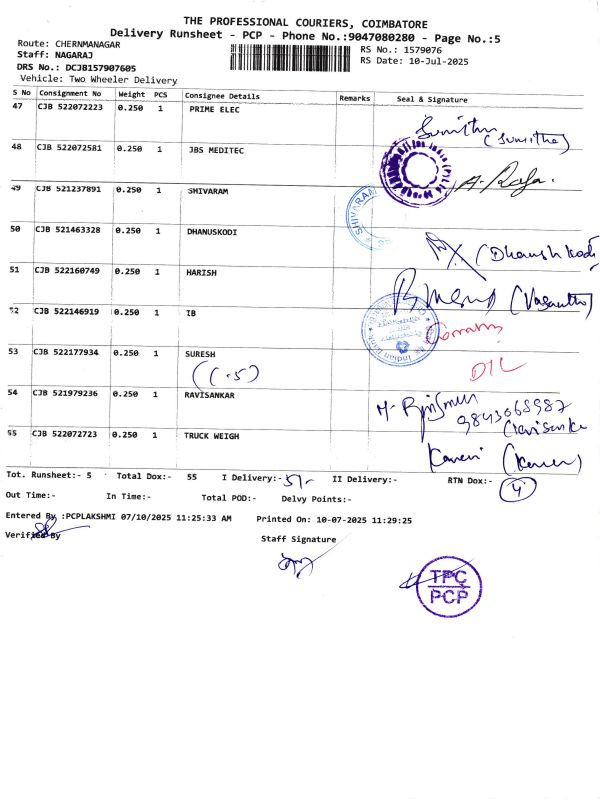 THE PROFESSIONAL COURIERS, COIMBATORE
Delivery Runsheet - PCP - Phone No.:9047080280 - Page No.:5
Route: CHERNMANAGAR
RS No.: 1579076
Staff: NAGARAJ
RS Date: 10-Jul-2025
DRS No.: DCJB157907605
Vehicle: Two Wheeler Delivery
S No Consignment No Weight PCS Consignee Details Remarks Seal & Signature
47 CJB 522072223 0.250 1 PRIME ELEC
(Sumitha)
48 CJB 522072581 0.250 1 JBS MEDITEC
49 CJB 521237891 0.250 1 SHIVARAM
SHIVARAM
50 CJB 521463328 0.250 1 DHANUSKODI
(Dhanushkodi)
51 CJB 522160749 0.250 1 HARISH
(Vasantha)
52 CJB 522146919 0.250 1 IB
Indian Bank
53 CJB 522177934 0.250 1 SURESH
D/L
54 CJB 521979236 0.250 1 RAVISANKAR
9843068987
55 CJB 522072723 0.250 1 TRUCK WEIGH
Tot. Runsheet:- 5 Total Dox:- 55 I Delivery:- 51- II Delivery:- RTN Dox:- 4
Out Time:- In Time:- Total POD:- Delvy Points:-
Entered By :PCPLAKSHMI 07/10/2025 11:25:33 AM Printed On: 10-07-2025 11:29:25
Verified By Staff Signature
TPC
PCP